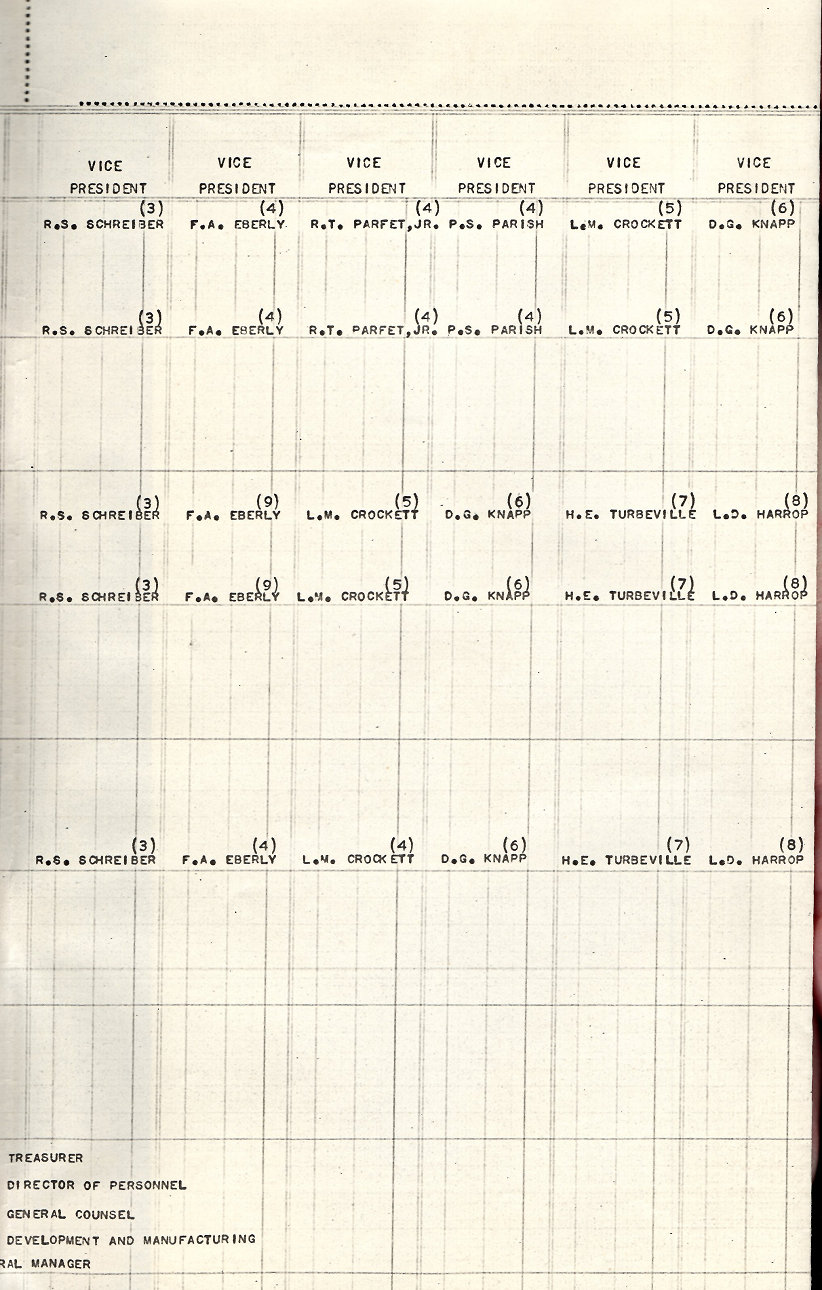 VICE VICE VICE VICE VICE VICE
PRESIDENT PRESIDENT PRESIDENT PRESIDENT PRESIDENT PRESIDENT
(3) (4) (4) (4) (5) (6)
R.S. SCHREIBER F.A. EBERLY R.T. PARFET,JR. P.S. PARISH L.M. CROCKETT D.G. KNAPP
(3) (4) (4) (4) (5) (6)
R.S. SCHREIBER F.A. EBERLY R.T. PARFET,JR. P.S. PARISH L.M. CROCKETT D.G. KNAPP
(3) (9) (5) (6) (7) (8)
R.S. SCHREIBER F.A. EBERLY L.M. CROCKETT D.G. KNAPP H.E. TURBEVILLE L.D. HARROP
(3) (9) (5) (6) (7) (8)
R.S. SCHREIBER F.A. EBERLY L.M. CROCKETT D.G. KNAPP H.E. TURBEVILLE L.D. HARROP
(3) (4) (4) (6) (7) (8)
R.S. SCHREIBER F.A. EBERLY L.M. CROCKETT D.G. KNAPP H.E. TURBEVILLE L.D. HARROP
TREASURER
DIRECTOR OF PERSONNEL
GENERAL COUNSEL
DEVELOPMENT AND MANUFACTURING
RAL MANAGER